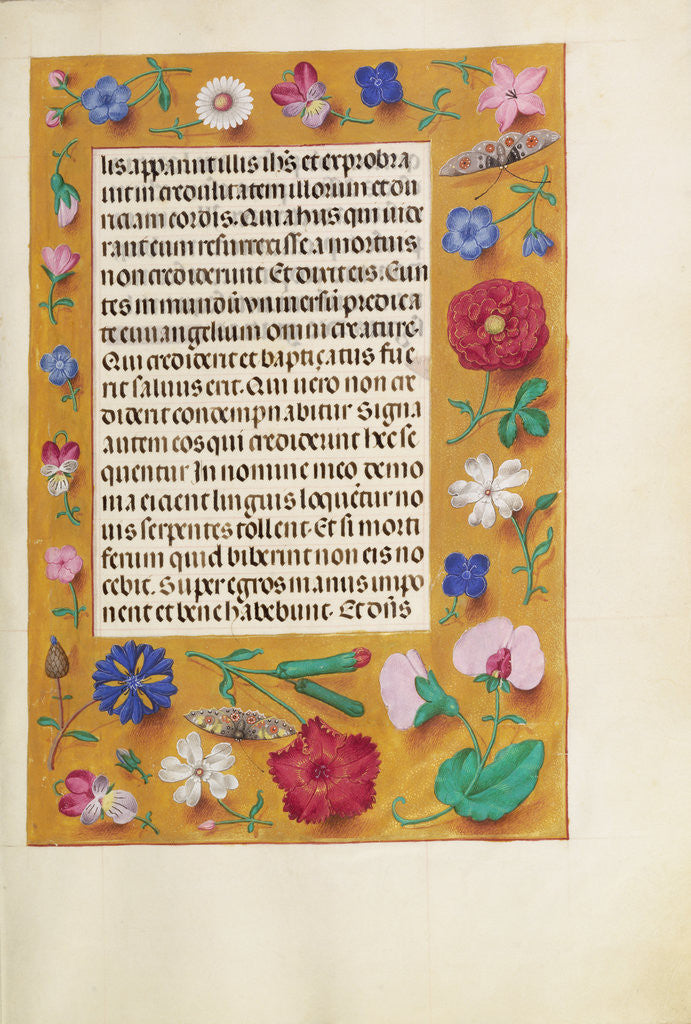 lis apparuit illis ihs̄ et exprobra
uit in credulitatem illorum et du
riciam cordis. Quia hus qui uide
rant eum resurrexisse a mortuis
non crediderunt Et dixit eis. Eun
tes in mundū vniuersū predica
te euuangelium omni creature.
Qui crediderit et baptiçatus fue
rit saluus erit. Qui uero non cre
diderit condempnabitur Signa
autem eos qui crediderunt hec se
quentur In nomine meo demo
nia eicient linguis loquētur no
uis serpentes tollent. Et si morti
ferum quid biberint non eis no
cebit. Super egros manus impo
nent et bene habebunt. Et dn̄s